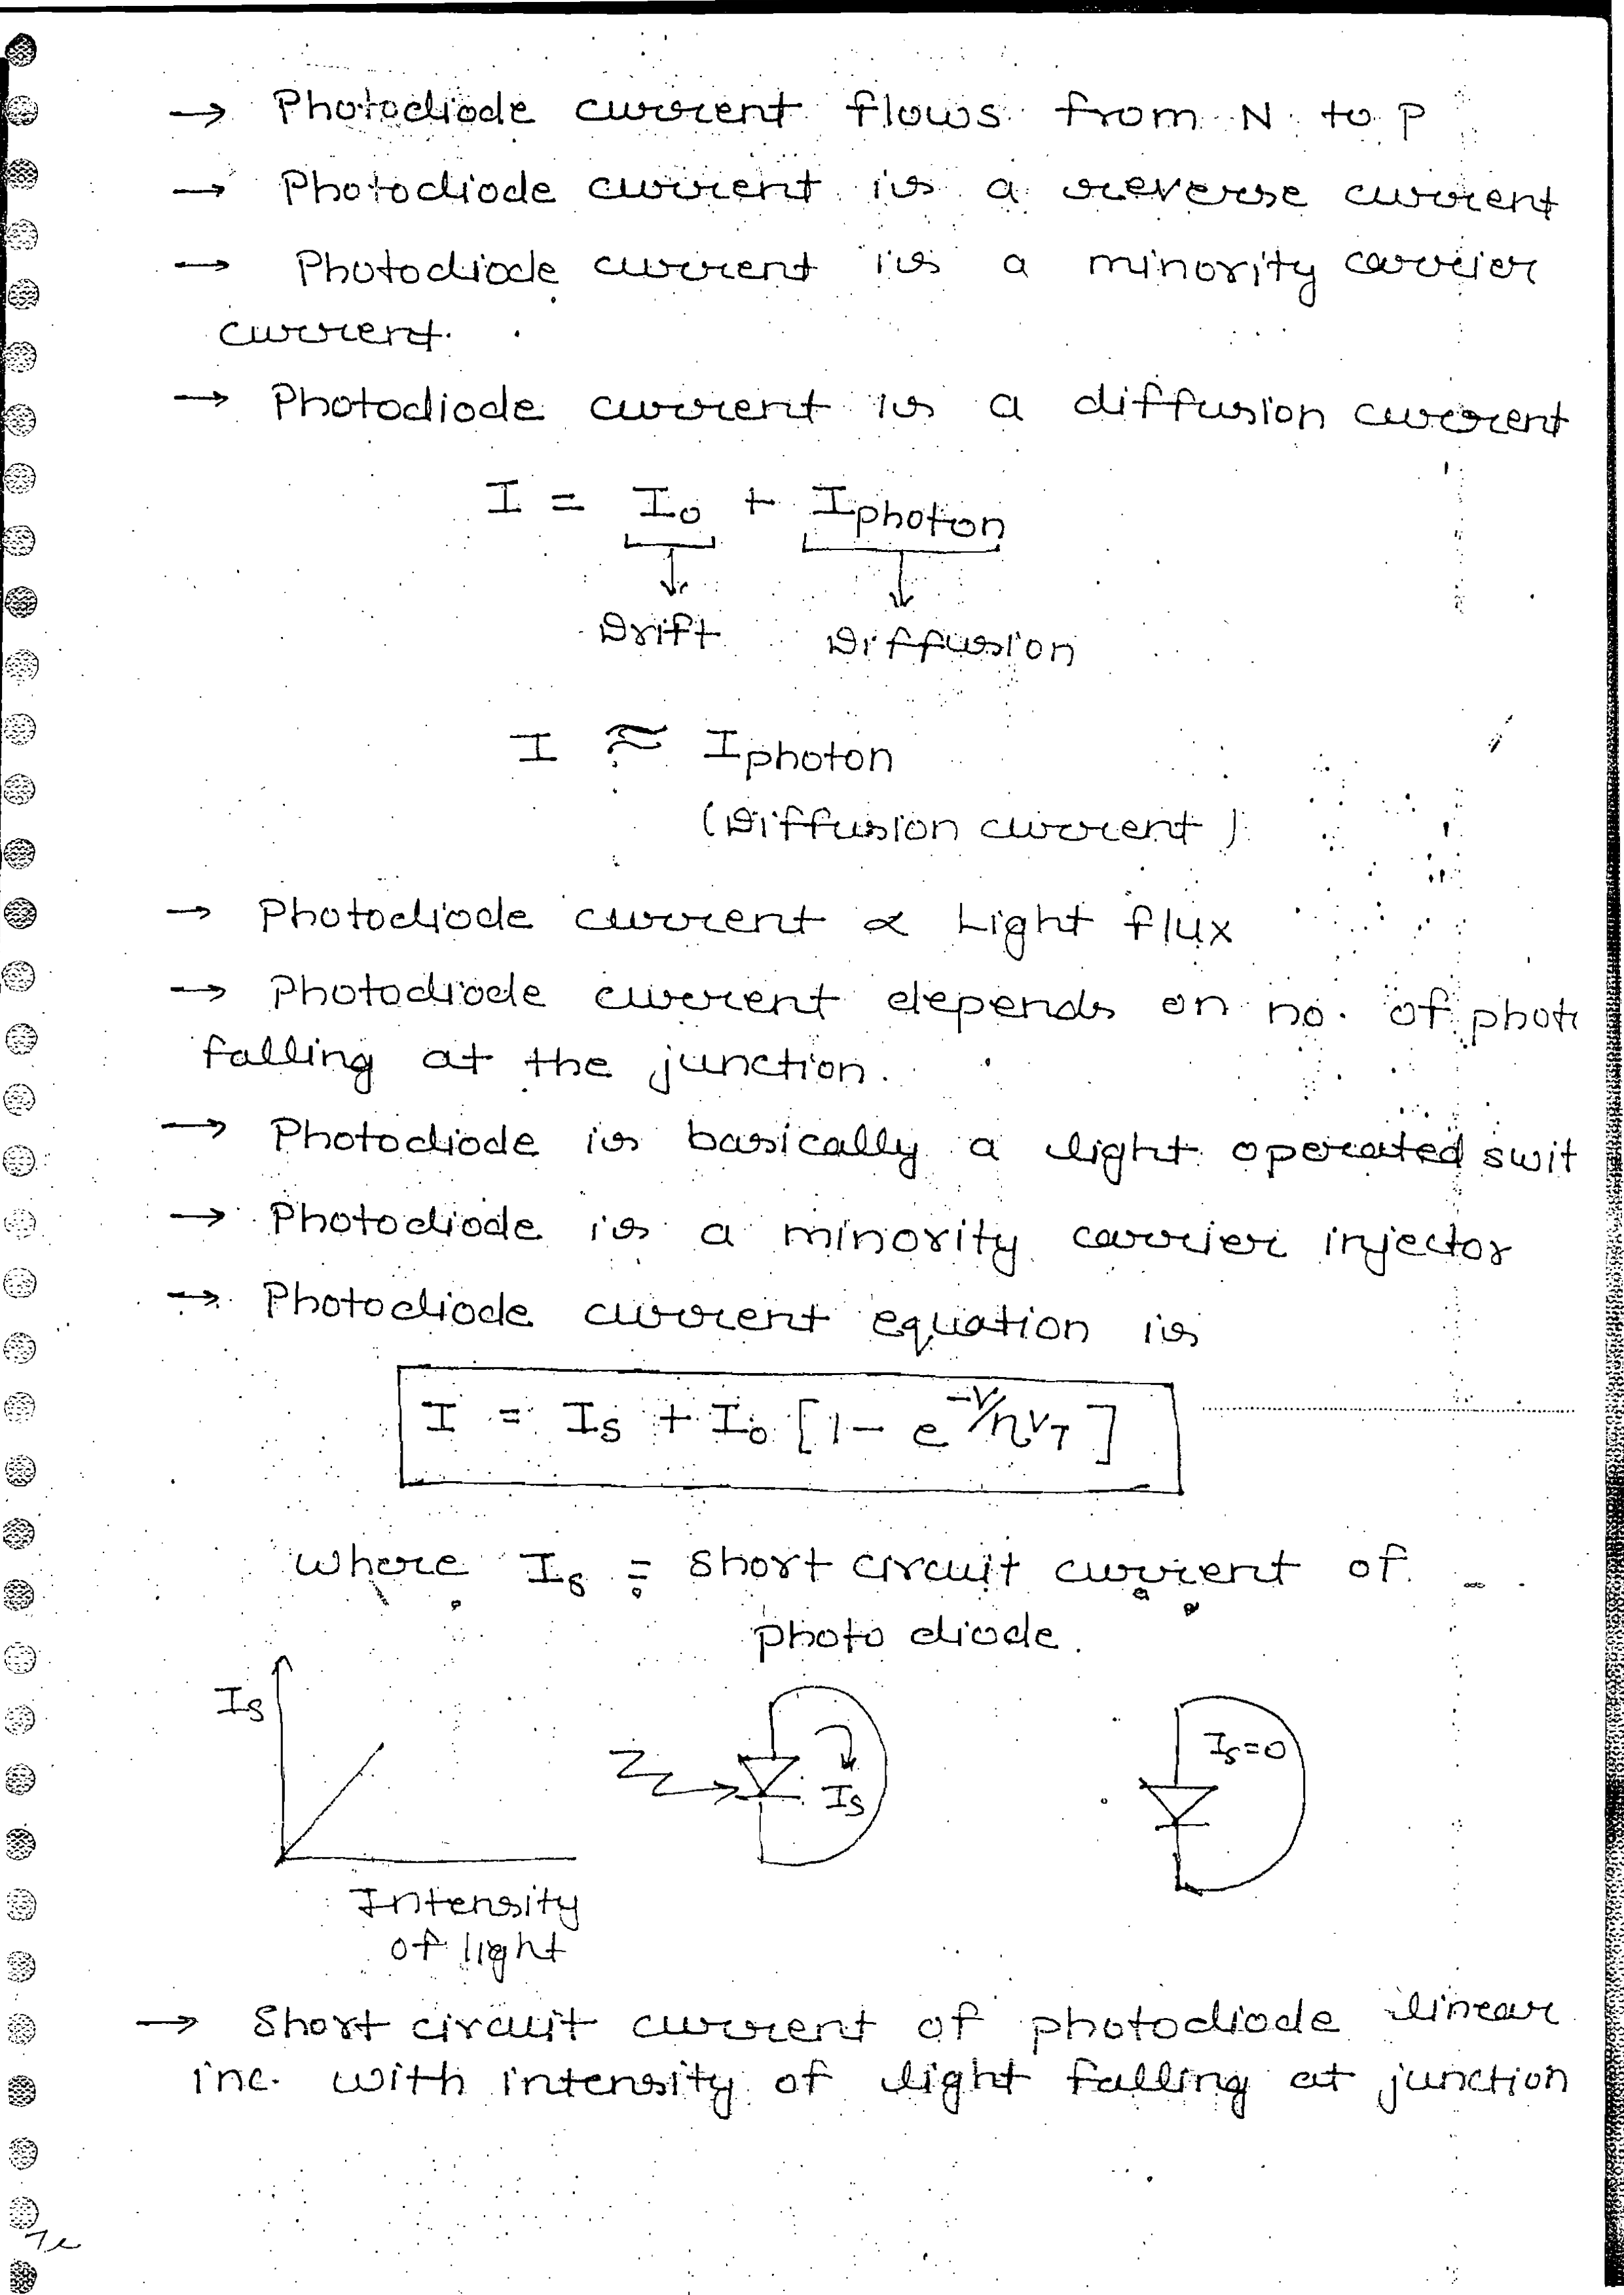 → Photodiode current flows from N to P
→ Photodiode current is a reverse current
→ Photodiode current is a minority carrier
current.
→ Photodiode current is a diffusion current
I = I₀ + Iphoton
Drift Diffusion
I ≈ Iphoton
(Diffusion current)
→ Photodiode current ∝ Light flux
→ Photodiode current depends on no. of phot
falling at the junction.
→ Photodiode is basically a light operated swit
→ Photodiode is a minority carrier injector
→ Photodiode current equation is
I = Is + I₀ [1 - e^-V/ηVT]
where Is = short circuit current of
photo diode.
Is
Is
Is=0
Intensity
of light
→ Short circuit current of photodiode linear
inc. with intensity of light falling at junction